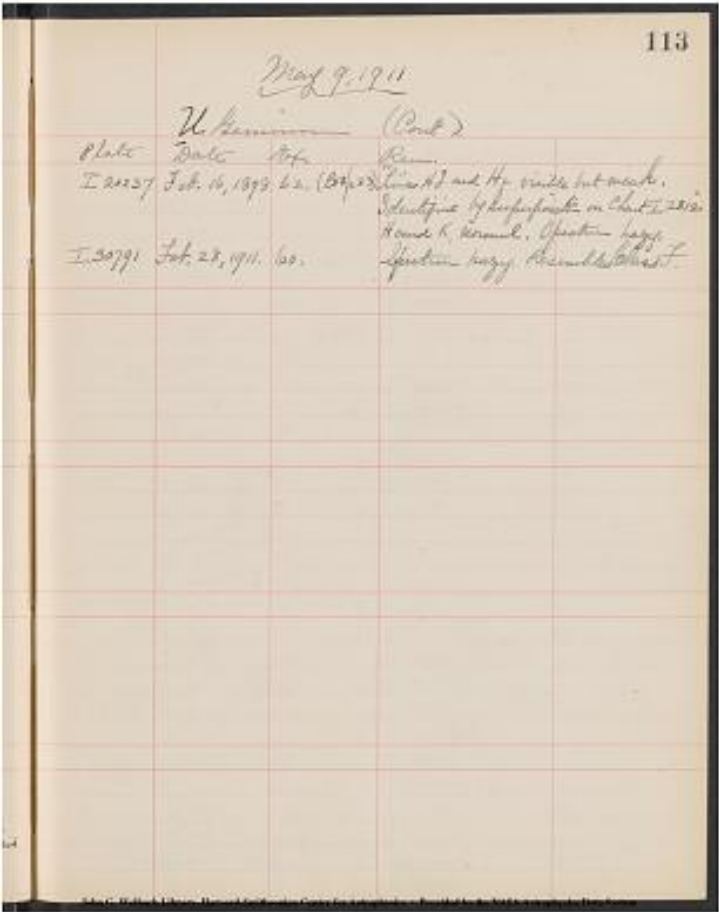 113
May 9, 1911
U Geminorum (Cont.)
Plate Date Exp. Rem.
I 20237 Feb. 16, 1898 62. Lines Hδ and Hγ visible but weak.
Identified by superposition on Chart I
H and K, normal. Spectrum hazy.
I 30791 Feb. 28, 1911. 60. Spectrum hazy. Resembles Class F.